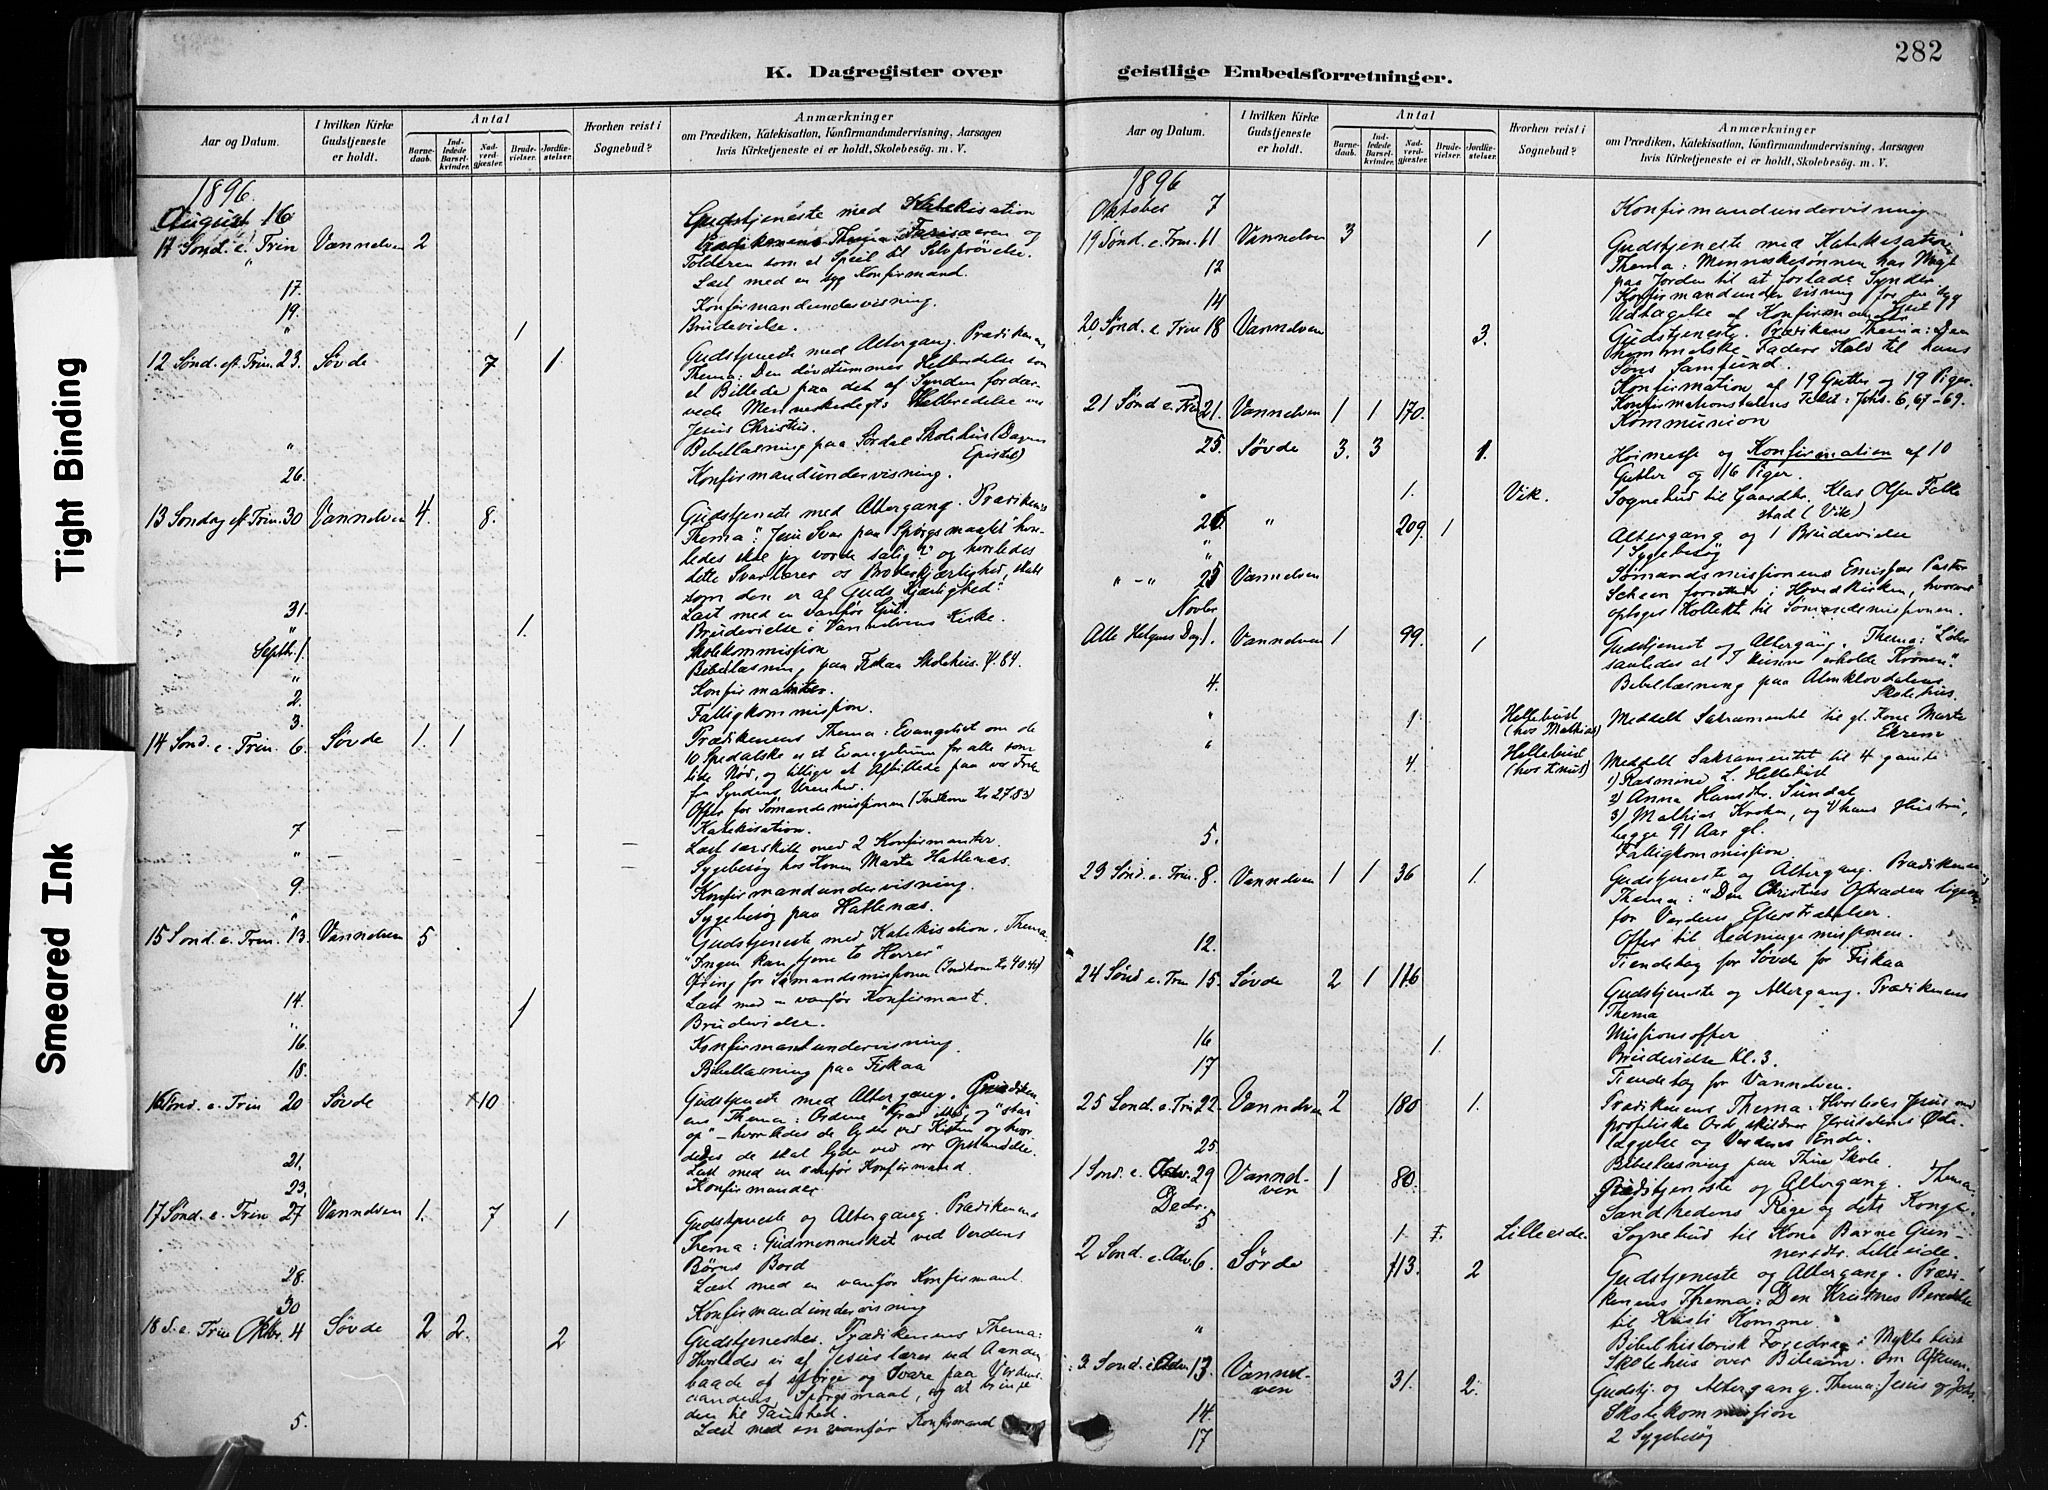 282
K. Dagregister over geistlige Embedsforretninger.
Aar og Datum. I hvilken Kirke Gudstjeneste er holdt. Antal Barnedaab. Indledede Barselkvinder. Nadverdgjæster. Brudevielser. Jordfæstelser. Hvorhen reist i Sognebud? Anmærkninger om Prædiken, Katekisation, Konfirmandundervisning, Aarsagen hvis Kirketjeneste ei er holdt, Skolebesøg. m. V.
1896
August 16
11 Sønd. e. Trin Vannelven 2 Gudstjeneste med Katekisation
Prædikenens Thema: Farisæeren og
Tolderen som et Speil til Selvprøvelse.
" Læst med en syg Konfirmand.
17. Konfirmandundervisning.
19. Brudevielse.
" 1
12 Sønd. eft. Trin. 23. Søvde 7 1. Gudstjeneste med Altergang. Prædikenens
Thema: Den døvstummes Helbredelse som
et Billede paa det af Synden fordær-
vede Menneskeslægts Helbredelse ved
Jesus Christus.
" Bibellæsning paa Sørdal Skolehus (Dagens
Epistel)
26. Konfirmandundervisning.
13 Søndag eft. Trin. 30 Vannelven 4. 8. Gudstjeneste med Altergang. Prædikenens
Thema: "Jesu Svar paa Spørgsmaalet hvor-
ledes skal jeg vorde salig?" og hvorledes
dette Svar lærer os Broderkjærlighed, skabt
som den er af Guds Kjærlighed!
31. Læst med en vanfør Gut.
" 1. Brudevielse i Vannelvens Kirke.
Septb. 1. Skolekommission
" Bibellæsning paa Fiskaa Skolehus. 84.
2. Konfirmanter.
3. Fattigkommission.
14 Sønd. e. Trin. 6. Søvde 1. 1 Prædikenens Thema: Evangeliet om de
10 Spedalske et Evangelium for alle som
lide Nød, og tillige et Afbillede paa vor Frelse
for Syndens Urenhed.
Offer for Sømandsmissionen (Indkom Kr 27.83)
Katekisation.
7 Læst særskilt med 2 Konfirmanter.
" Sygebesøg hos Konen Marte Hatlenæs.
9. Konfirmandundervisning.
" Sygebesøg paa Hatlenæs.
15 Sønd. e. Trin. 13. Vannelven 5 Gudstjeneste med Katekisation. Thema
"Ingen kan tjene to Herrer"
Ofring for Sømandsmissionen (Indkom Kr 40.)
14. Læst med en vanfør Konfirmant.
" 1 Brudevielse.
16. Konfirmantundervisning.
18. Bibellæsning paa Fiskaa
16 Sønd. e. Trin 20 Søvde 10 Gudstjeneste med Altergang. Prædiken-
ens Thema: Ordene "Græd ikke" og "staa
op" – hvorledes de lyde ved Kisten og hvor-
ledes de skal lyde ved vor Opstandelse.
21. Læst med en vanfør Konfirmand.
23. Konfirmander
17 Sønd. e. Trin 27 Vannelven 1. 7 1 Gudstjeneste og Altergang. Prædikenens
Thema: Gudmennesket ved Verdens
Børns Bord
28. Læst med en vanfør Konfirmant.
30 Konfirmandundervisning
18 S. e. Trin Oktbr. 4 Søvde 2 2. 2 Gudstjeneste. Prædikenens Thema:
Hvorledes vi af Jesus lærer ved Aanden
baade at spørge og svare paa Verdens-
aandens Spørgsmaal, og at bringe
den til Taushed.
5. Læst med en vanfør Konfirmand
Aar og Datum. I hvilken Kirke Gudstjeneste er holdt. Antal Barnedaab. Indledede Barselkvinder. Nadverdgjæster. Brudevielser. Jordfæstelser. Hvorhen reist i Sognebud? Anmærkninger om Prædiken, Katekisation, Konfirmandundervisning, Aarsagen hvis Kirketjeneste ei er holdt, Skolebesøg. m. V.
1896
Oktober 7 Konfirmandundervisning
19 Sønd. e. Trin. 11 Vannelven 3 1 Gudstjeneste med Katekisation
Thema: Menneskesønnen har Magt
paa Jorden til at forlade Synder
12 Konfirmandundervisning for en syg
Gut
14 Udtagelse af Konfirmander
20 Sønd. e. Trin 18 Vannelven 3. Gudstjeneste. Prædikens Thema: Den
himmelske Faders Kald til hans
Søns Samfund.
Konfirmation af 19 Gutter og 19 Piger
21 Sønd e. Trin 21. Vannelven 1 1 170. Konfirmationstalens Text: Johs. 6, 67-69.
Kommunion
25. Søvde 3. 3 1. Høimesse og Konfirmation af 10
Gutter og 16 Piger
" 1. Vik. Sognebud til Gaardbr. Klas Olsen Fylle
stad (Vik)
26. " 209. 1 Altergang og 1 Brudevielse
" 1 Sygebesøg
" - " 25 Vannelven Sømandsmissionens Emissær Pastor
Scheen forretter i Hovedkirken, hvorved
optoges Kollekt til Sømandsmissionen.
Novbr
Alle Helgens Dag 1. Vannelven 1 99 1 Gudstjenest og Altergang. Thema: "Løber
saaledes at I kunne erholde Kronen."
4. Bibellæsning paa Almklovdalens
Skolehus.
" 1 Hellebust (hos Mathias) Meddelt Sakramentet til gl. Kone Marte
Ekrem
" 4. Hellebust (hos Knut) Meddelt Sakramentet til 4 gamle
1) Rasmine L. Hellebust
2) Anna Hansdtr. Sundal
3) Mathias Kroken, og 4) hans Hustru,
begge 91 Aar gl.
5. Fattigkommission
23 Sønd. e. Trin. 8. Vannelven 1 1 36 1. Gudstjeneste og Altergang. Prædikenens
Thema: "Den Christnes Optræden ligeoverfor
for Verdens Efterstræbelser.
Offer til Redningsmissionen.
12. Tiendetag for Søvde for Fiskaa
24 Sønd e. Trin 15. Søvde 2 1 116 Gudstjeneste og Altergang. Prædikenens
Thema
Missionsoffer
16 1. Brudevielse Kl. 3.
17 Tiendetag for Vannelven.
25 Sønd. e. Trin 22. Vannelven 2 180 1. Prædikenens Thema: Hvorledes Jesus med
profetiske Ord skildrer Jerusalems Øde-
læggelse og Verdens Ende.
25 Bibellæsning paa Thue Skole.
1 Sønd. e. Adv. 29 Vannel-
ven 1 80. Gudstjeneste og Altergang. Thema
Sandhedens Rige og dets Konge.
Decbr.
5 1. Lilleeide. Sognebud til Kone Barne Gun-
nersdtr. Lilleeide.
2 Sønd. e. Adv. 6. Sørde 113. 2 Gudstjeneste og Altergang. Prædi-
kenens Thema: Den Kristnes Beredelse
til Kristi Komme.
" Bibelhistorisk Foredrag i Myklebust
Skolehus over Bileam. Om Aftenen.
3 Sønd. i Adv. 13. Vannel-
ven 31. 2. Gudstj. og Altergang. Thema: Jesus og Johs.
14. Skolekommission
17 2 Sygebesøg
Tight Binding
Smeared Ink